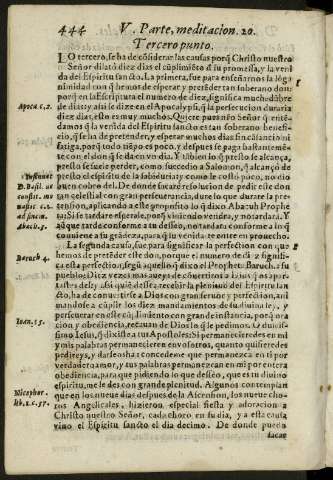 444 V. Parte, meditacion. 20.
Tercero punto.
LO tercero, se ha de cōsiderar las causas porq̄ Christo nuestro
Señor dilató diez dias el cūplimiēto d̄ su promessa, y la veni
da del Espiritu sancto. La primera, fue para enseñarnos la lōga
nimidad con q̄ hemos de esperar y pretēder tan soberano don:
porq̄ en la Escriptura el numero de diez, significa muchedūbre
Apoca. c. 2. de dias: y assi se dize en el Apocalypsi, q̄ la persecucion duraria
diez dias, esto es muy muchos. Quiere pues nr̄o Señor q̄ entē
damos q̄ la venida del Espiritu sancto es tan soberano benefi-
cio, q̄ se ha de pretender, y esperar muchos dias sin cāsarse ni
fatiga, porq̄ todo tiēpo es poco, y despues se paga bastantemē
te con el don q̄ se da en vn dia. Y tābien lo q̄ presto se alcança,
presto se suele perder, como succedio a Salomon, q̄ alcançó de
presto el espiritu de la sabiduria: y como le costó poco, no dio
D. Basil. in buen cobro del. De donde sacaré resolucion de pedir este don
constit. mo tan celestial con gran perseuerancia, dure lo que durare la pre-
nast. c. 2. tension, aplicando a este proposito lo que dixo Abacuh Prophe
ad finem. ta: Si se tardare esperale, porq̄ viniendo vendra, y no tardara. Y
Abacu. 2. aūque tarde conforme a tu desseo, no tardará conforme a lo q̄
conuiene a su grādeza, para q̄ la venida te entre en prouecho.
La segunda causa, fue para significar la perfection con que
hemos de pretēder este don, porque el numero de diez signifi-
Baruch 4. ca esta perfection, segū aquello q̄ dixo el Propheta Baruch, a su
pueblo: Diez vezes mas aueys de conuertiros a Dios q̄ os apar
tastes del: y assi quien dessea recebir la plenitud del Espiritu san
cto, ha de conuertirse a Dios con gran feruor y perfeccion, ani
mandose a cūplir los diez mandamientos de su diuina ley, y
perseuerar en este cūplimiento con grande instancia, porq̄ ora
cion y obediencia, recauan de Dios lo q̄ le pedimos. O dulcis-
Ioan. 15. simo Iesus, q̄ dixiste a tus Apostoles: Si permanecieredes en mi
y mis palabras permanecieren en vosotros, quanto quisieredes
pedireys, y darseos ha: concedeme que permanezca en ti por
verdadero amor, y tus palabras permanezcan en mi por entera
obediencia, para que pidiendo lo que desseo, que es tu diuino
espiritu, me le des con grande plenitud. Algunos contemplan
Nicephor. que en los nueue dias despues de la Ascension, los nueue cho-
lib. 2. c. 37. ros Angelicales, hizieron especial fiesta y adoracion a
Christo nuestro Señor, cada choro en su dia, y a esta causa
vino el Espiritu sancto el dia decimo. De donde puedo
sacar